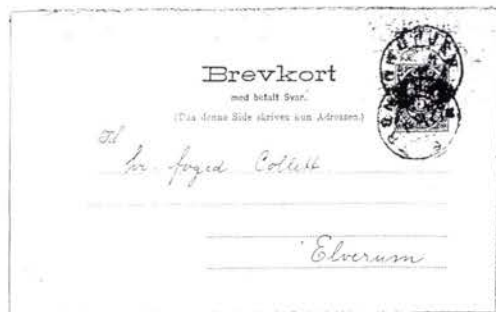 Brevkort
med betalt Svar.
(Paa denne Side skrives kun Adressen.)
Til
hr. foged Collett
Elverum